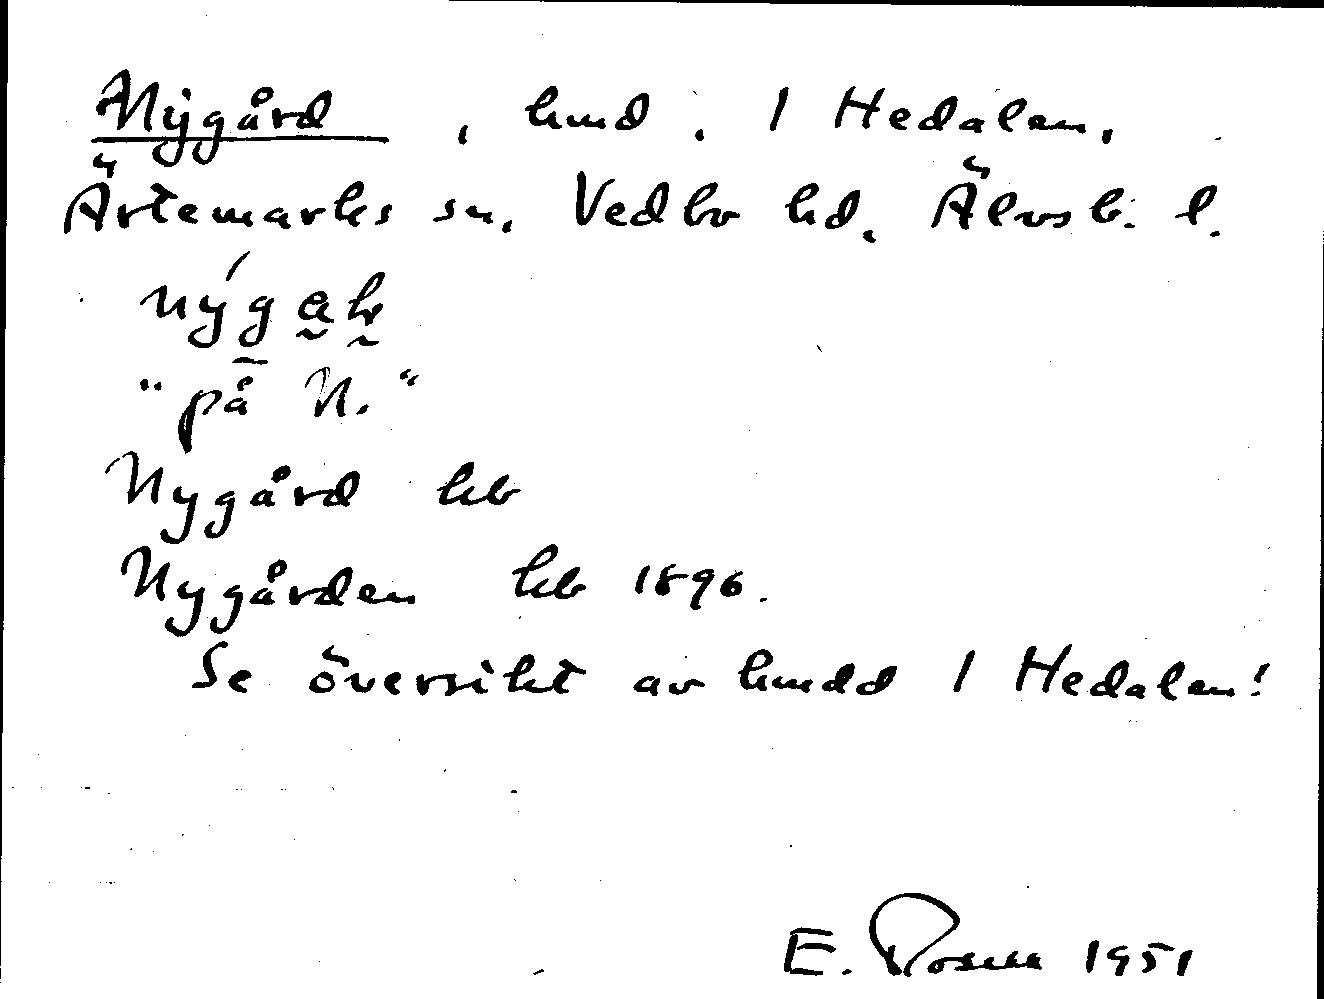 Nygård, hmd. 1 Hedalen,
Ärtemarks sn. Vedbo hd. Älvsb. l.
"på N."
Nygård kb
Nygården kb 1896.
Se översikt av hmdd 1 Hedalen!
E. Rosell 1951